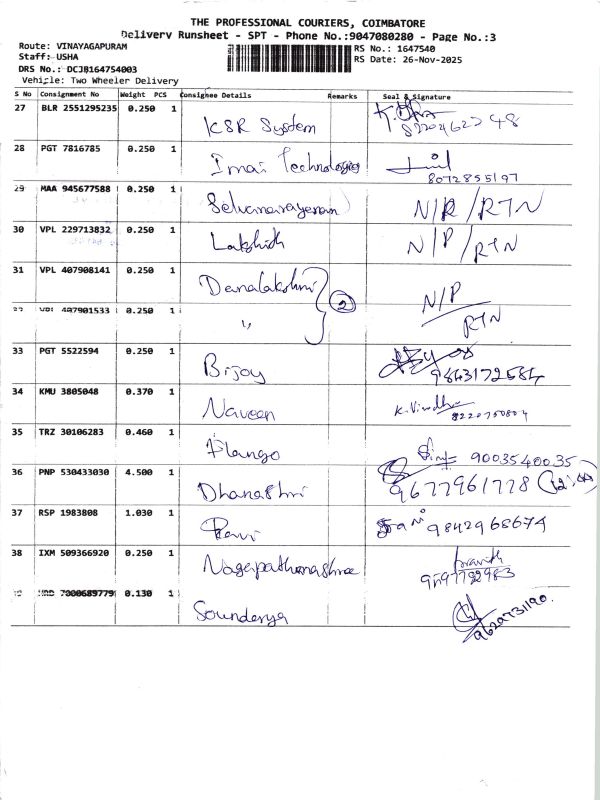 THE PROFESSIONAL COURIERS, COIMBATORE
Delivery Runsheet - SPT - Phone No.:9047080280 - Page No.:3
Route: VINAYAGAPURAM
Staff: USHA
DRS No.: DCJB164754003
Vehicle: Two Wheeler Delivery
RS No.: 1647540
RS Date: 26-Nov-2025
S No Consignment No Weight PCS Consignee Details Remarks Seal & Signature
27 BLR 2551295235 0.250 1 KSR System
28 PGT 7816785 0.250 1 Imai Technologies 8072855197
29 MAA 945677588 0.250 1 Selvanarayanan N/R / RTN
30 VPL 229713832 0.250 1 Lakshith N/P / RTN
31 VPL 407908141 0.250 1 Danalakshmi 2 N/P
VPL 407901533 0.250 1 " RTN
33 PGT 5522594 0.250 1 Bijoy 9843172584
34 KMU 3805048 0.370 1 Naveen K. Vindhu 8220750804
35 TRZ 30106283 0.460 1 Elango 9003540035
36 PNP 530433030 4.500 1 Dhanashri 9677961778
37 RSP 1983808 1.030 1 Ravi 9842968674
38 IXM 509366920 0.250 1 Nagapathmashree
7000689779 0.130 1 Sounderya 9629731190